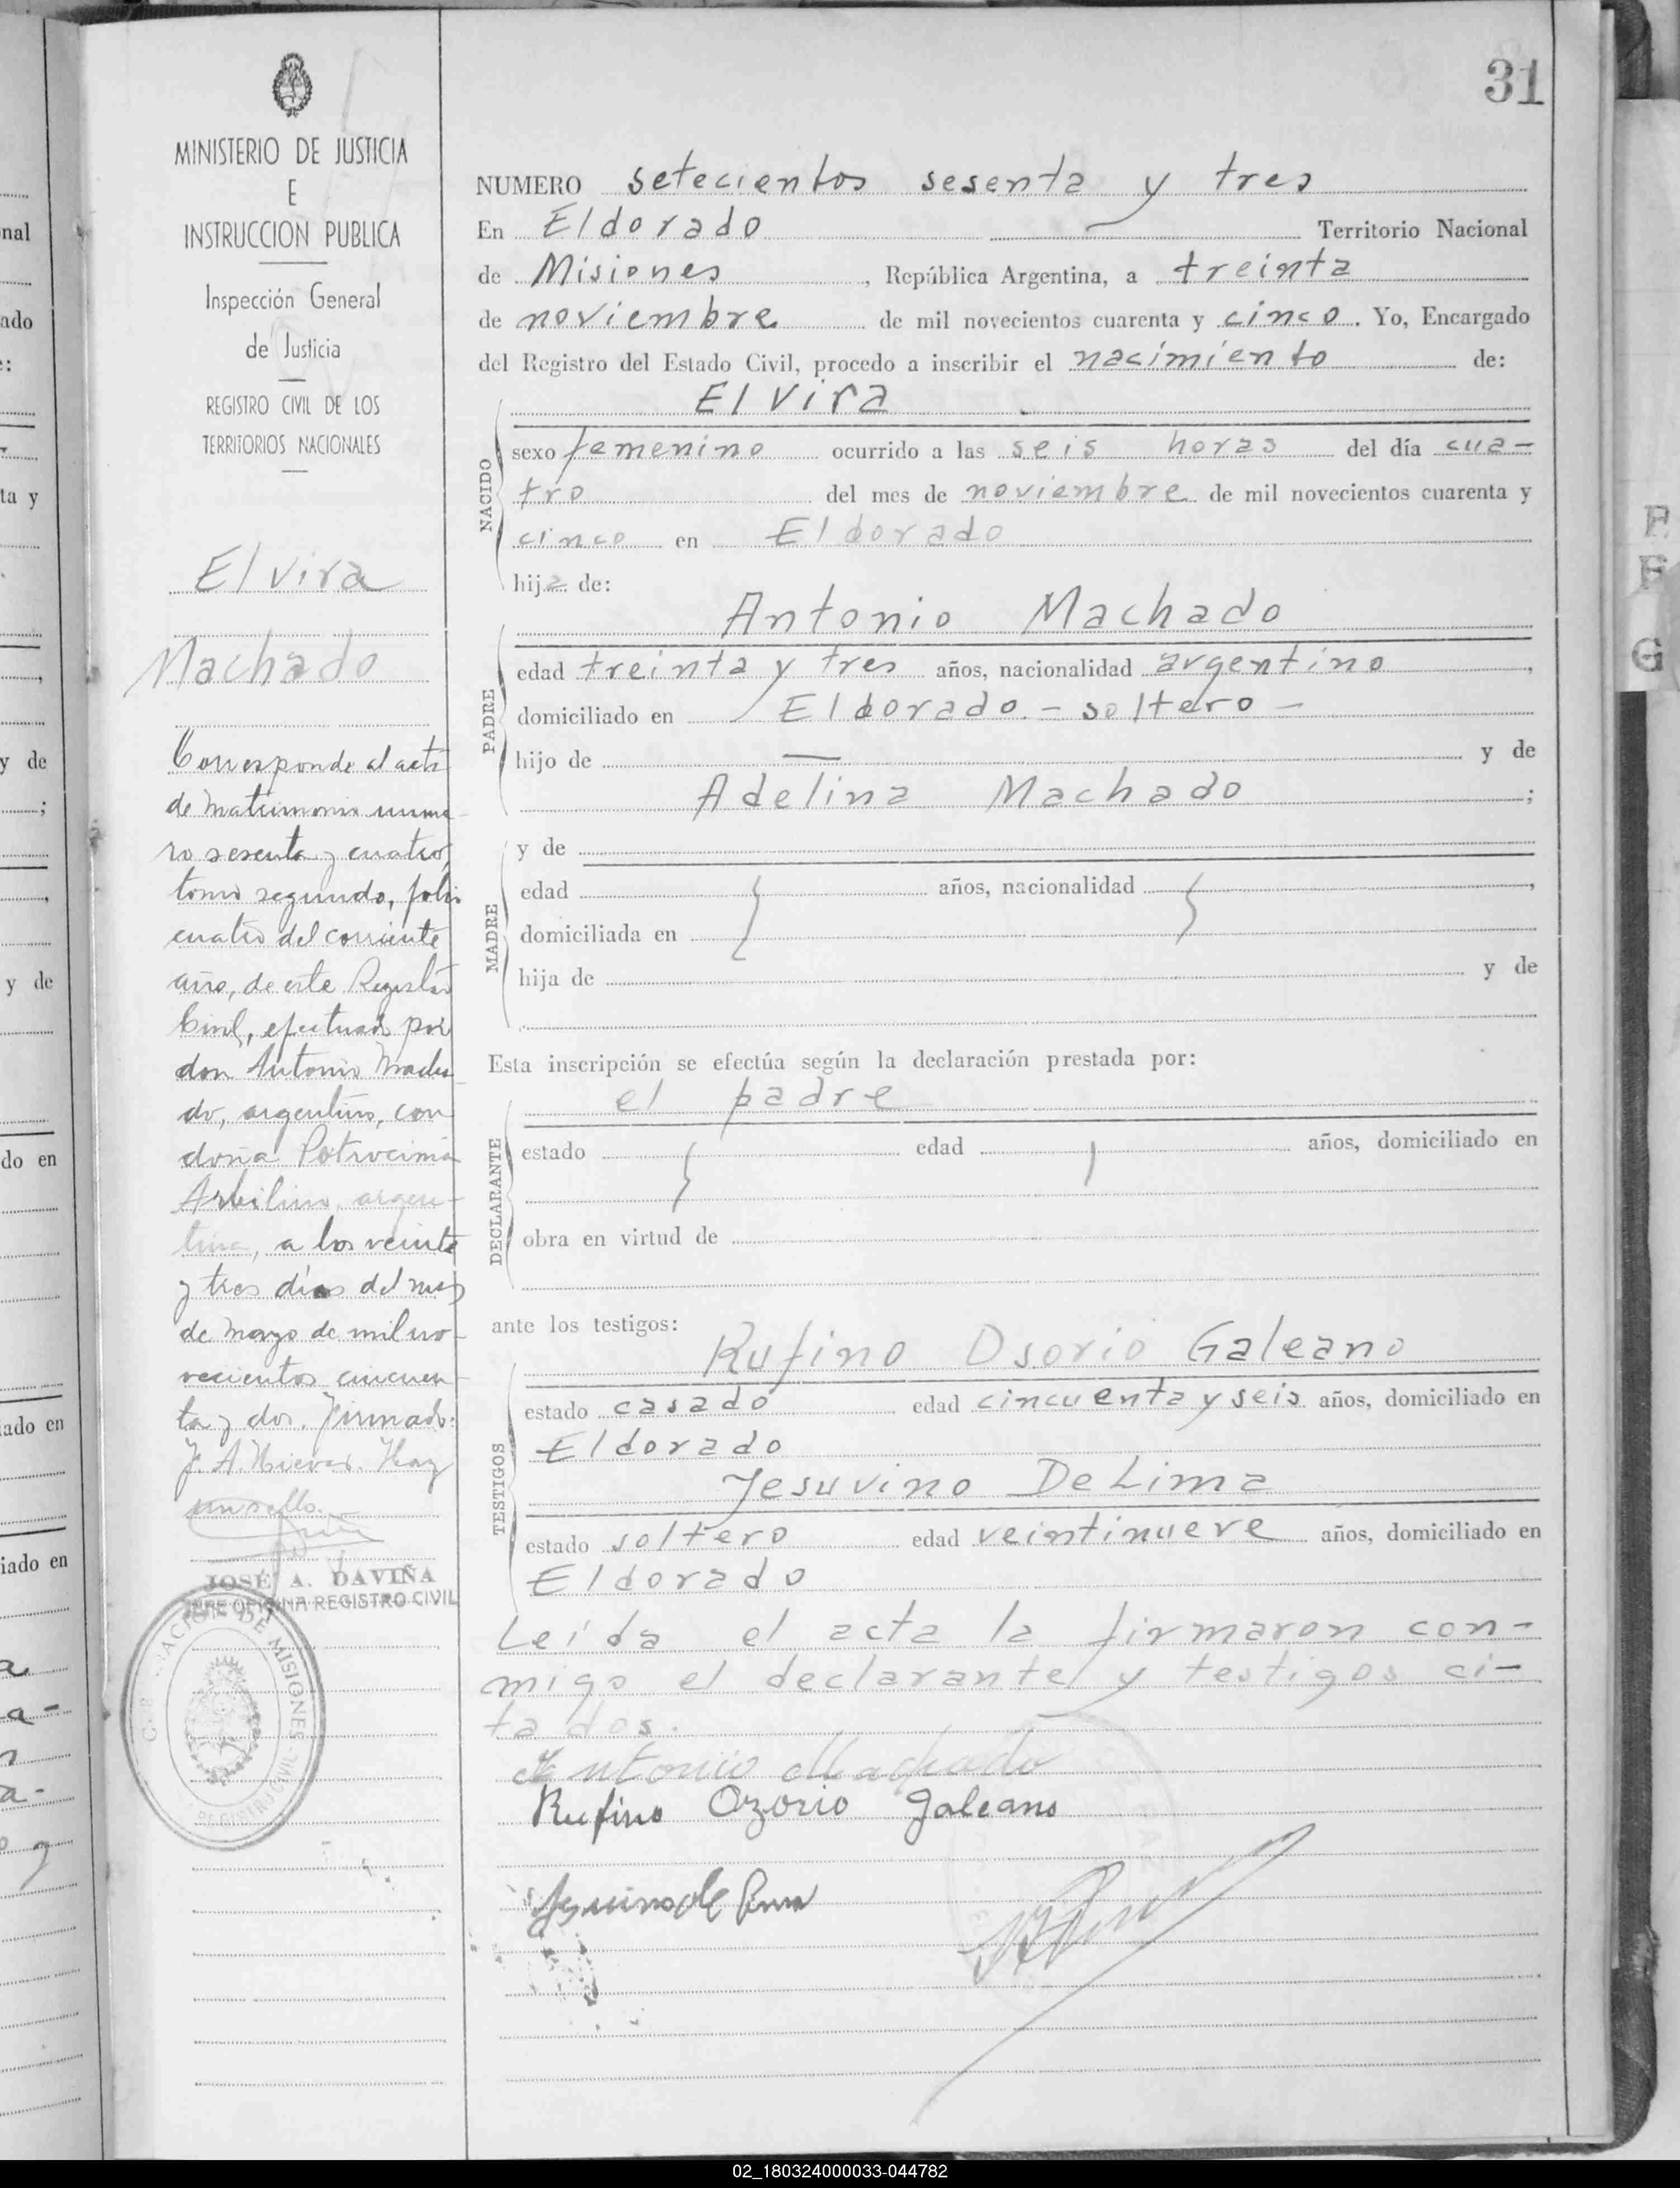 31
MINISTERIO DE JUSTICIA
E
INSTRUCCION PUBLICA
Inspección General
de Justicia
REGISTRO CIVIL DE LOS
TERRITORIOS NACIONALES
Elvira
Machado
Corresponde al acta
de matrimonio nume-
ro sesenta y cuatro,
tomo segundo, folio
cuatro del corriente
año, de este Registro
Civil, efectuado por
don Antonio Macha-
do, argentino, con
doña
argen-
tina, a los veinte
y tres días del mes
de mayo de mil no-
vecientos cincuen-
ta y dos. Firmado:
J. A. Hay
un sello.
JOSÉ A. DAVIÑA
JEFE OFICINA REGISTRO CIVIL
DE MISIONES
REGISTRO CIVIL
NUMERO setecientos sesenta y tres
En Eldorado Territorio Nacional
de Misiones, República Argentina, a treinta
de noviembre de mil novecientos cuarenta y cinco. Yo, Encargado
del Registro del Estado Civil, procedo a inscribir el nacimiento de:
Elvira
NACIDO
sexo femenino ocurrido a las seis horas del día cua-
tro del mes de noviembre de mil novecientos cuarenta y
cinco en Eldorado
hija de:
Antonio Machado
PADRE
edad treinta y tres años, nacionalidad argentino,
domiciliado en Eldorado - soltero -
hijo de — y de
Adelina Machado ;
MADRE
y de
edad años, nacionalidad ,
domiciliada en
hija de y de
Esta inscripción se efectúa según la declaración prestada por:
el padre
DECLARANTE
estado edad años, domiciliado en
obra en virtud de
ante los testigos:
Rufino Osorio Galeano
TESTIGOS
estado casado edad cincuenta y seis años, domiciliado en
Eldorado
Jesuvino De Lima
estado soltero edad veintinueve años, domiciliado en
Eldorado
Leída el acta la firmaron con-
migo el declarante y testigos ci-
tados.
Antonio Machado
Rufino Ozorio Galeano
nal
ado
ta y
y de
y de
do en
iado en
iado en
02_180324000033-044782